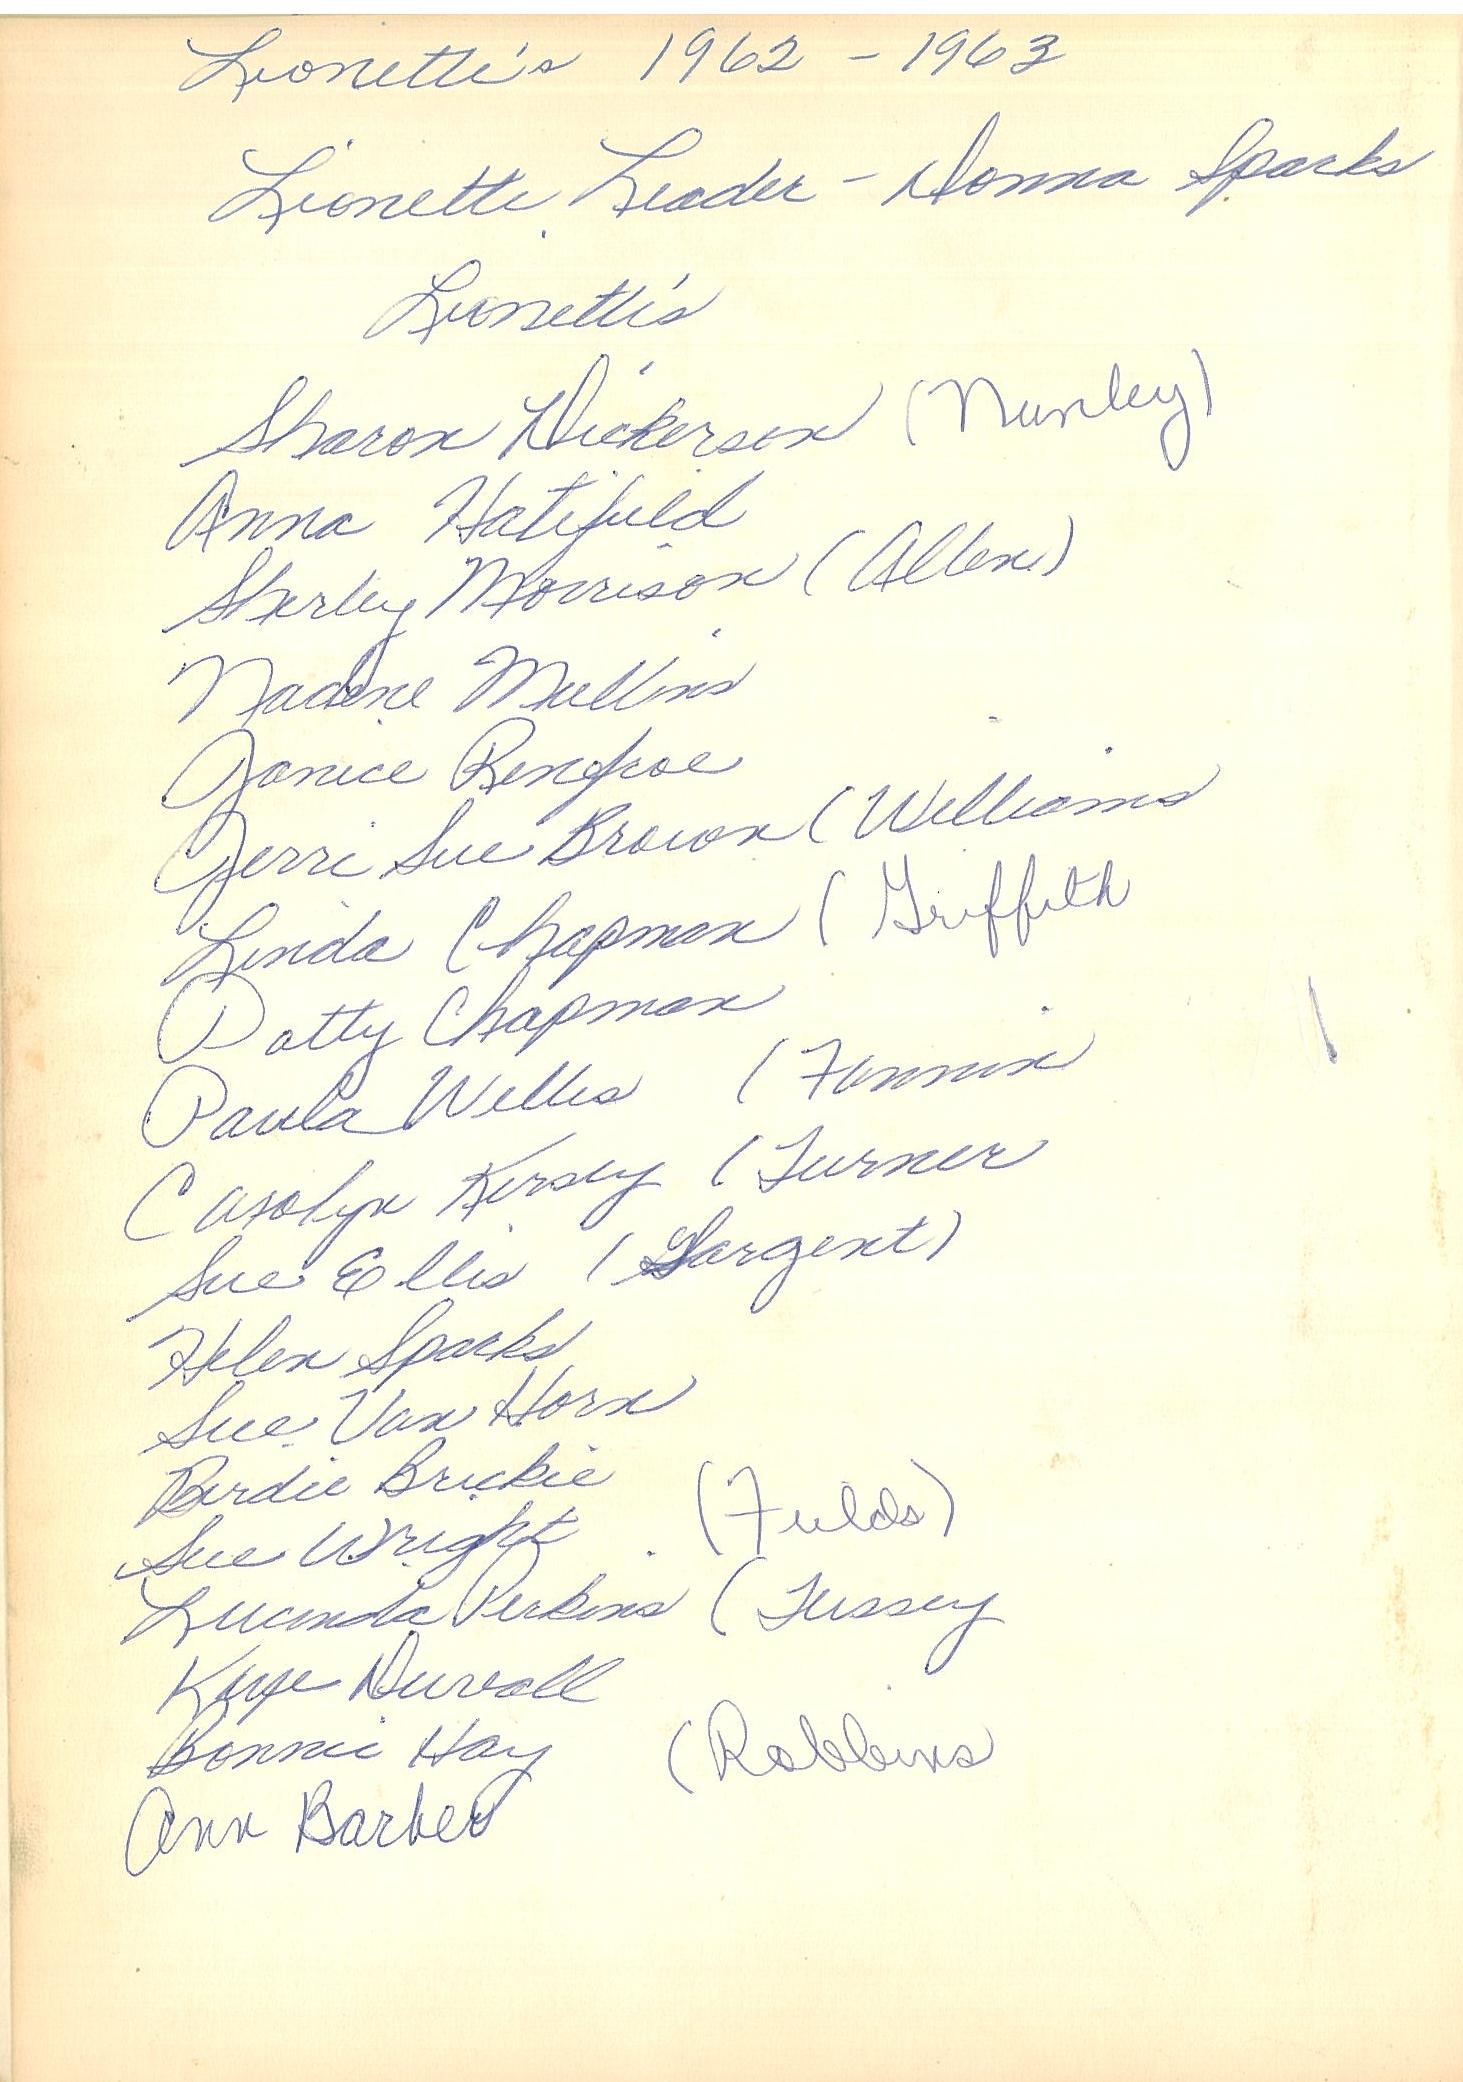 Lionette's 1962 - 1963
Lionette Leader - Donna Sparks
Lionette's
Sharon Dickerson (Nunley)
Anna Hatifield
Sherley Morrison (Allen)
Nadine Mullins
Janice Renfroe
Jerri Sue Brown (Williams
Linda Chapman (Griffith
Patty Chapman
Paula Willis (Fannin
Carolyn Kersey (Turner
Sue Ellis (Sargent)
Helen Sparks
Sue Van Horn
Birdie Brickie
Sue Wright (Fields)
Lucinda Perkins (Tussey
Kaye Duvall
Bonnie Hay (Robbins
Ann Barber